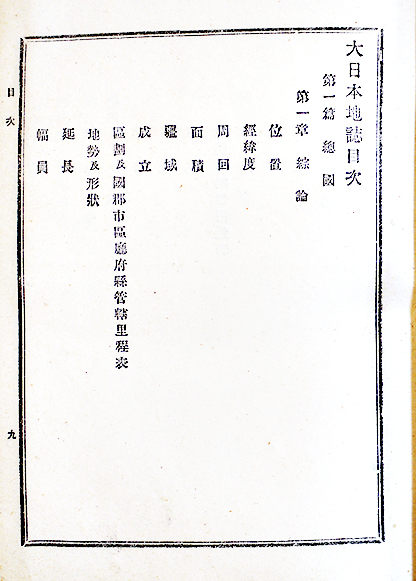 大日本地誌目次
第一篇 總國
第一章 綜論
位置
經緯度
周回
面積
疆域
成立
區劃及國郡市區廳府縣管轄里程表
地勢及形狀
延長
幅員
目次
九